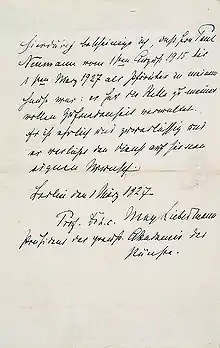 Hierdurch bescheinige ich, daß Herr Paul
Neumann vom 1ten August 1915 bis
1ten März 1927 als Pförtner in meinem
Hause war. er hat die Stelle zu meiner
vollen Zufriedenheit verwaltet.
Er ist ehrlich und zuverlässig und
er verläßt den Dienst auf seinen
eignen Wunsch.
Berlin den 1 März 1927.
Prof. Dr h. c. Max Liebermann
Präsident der preuss. Akademie der
Künste.